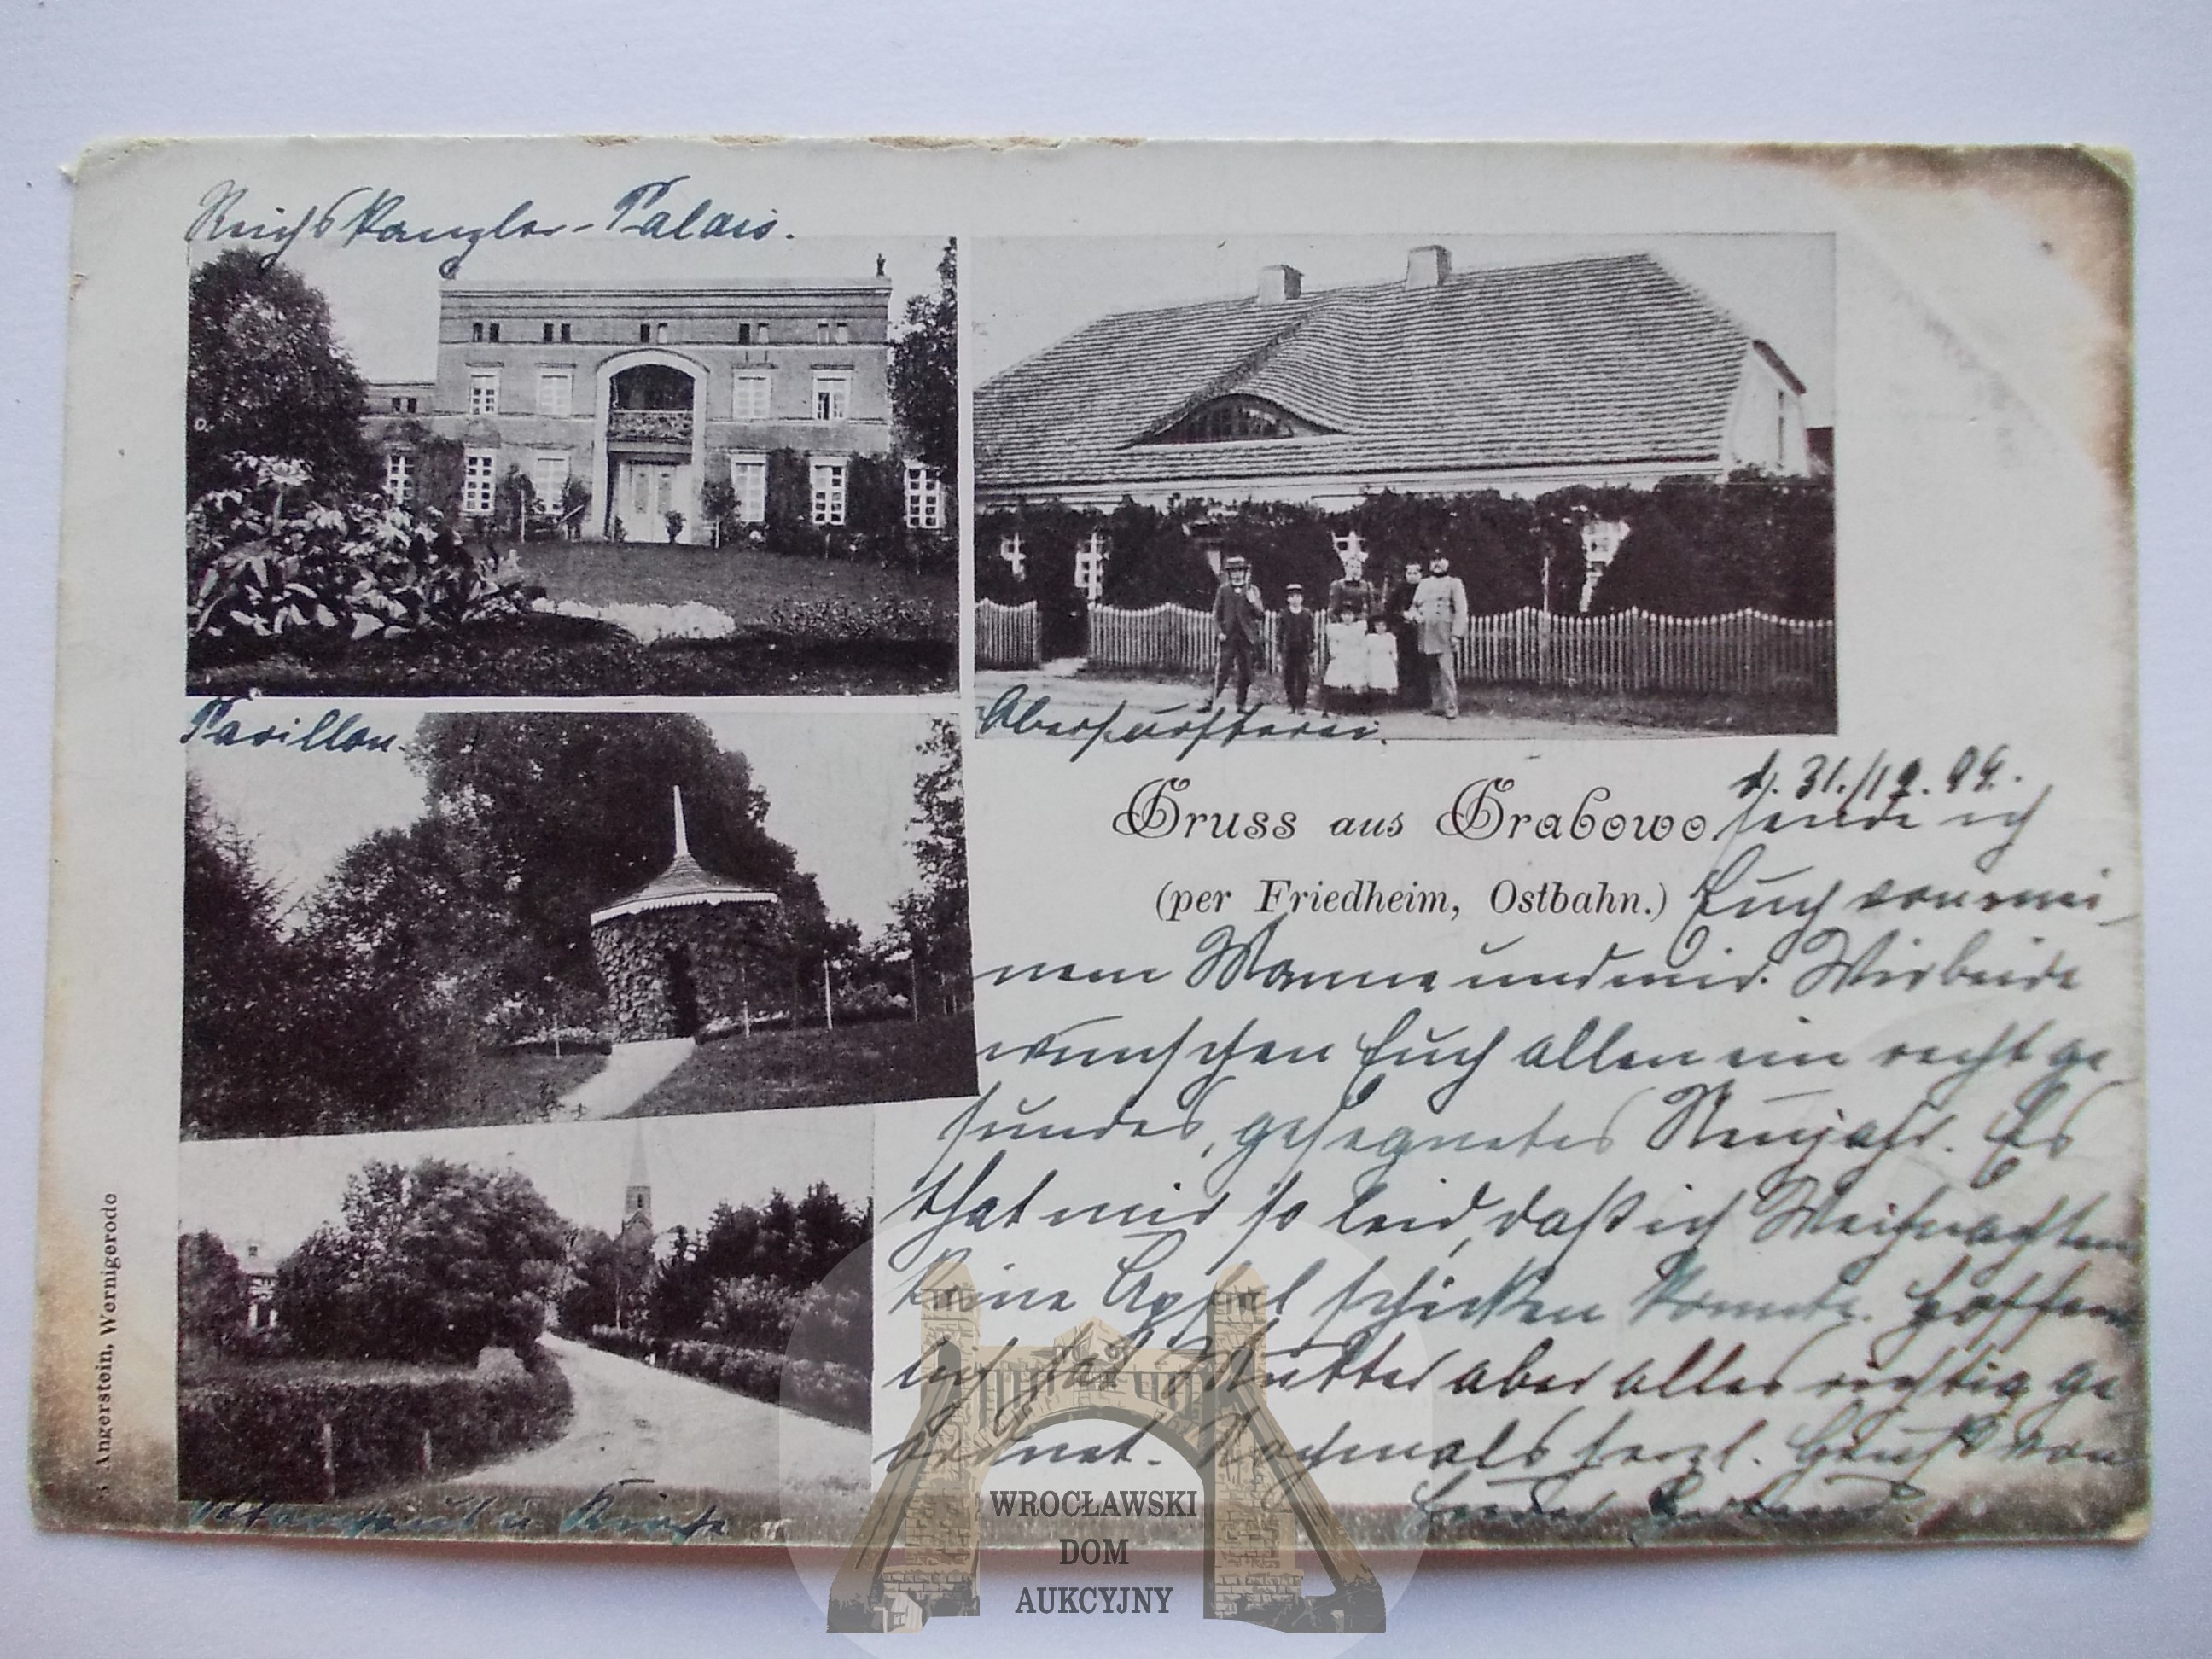 Reichskanzler-Palais.
Pavillon.
Oberförsterei.
Gruss aus Grabowo
(per Friedheim, Ostbahn.)
d. 31./12. 99.
sende ich
Euch von mei-
nem Manne und mir. Wir beide
wünschen Euch allen ein recht ge-
sundes, gesegnetes Neujahr. Es
that mir so leid, daß ich Weihnachten
keine Äpfel schicken konnte. Hoffent
lich hat Mutter aber alles richtig ge
ordnet. Nochmals herzl. Gruß von
u. Kirche
Angerstein, Wernigerode
WROCŁAWSKI
DOM
AUKCYJNY